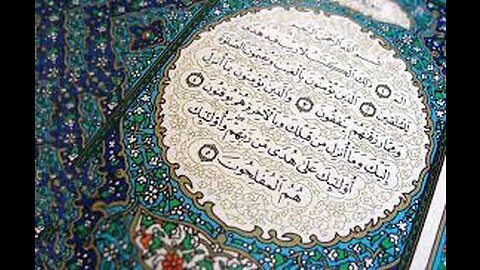 بِسْمِ اللَّهِ الرَّحْمَٰنِ الرَّحِيمِ
الٓمٓ ١ ذَٰلِكَ الْكِتَٰبُ لَا رَيْبَ فِيهِ هُدًى
لِّلْمُتَّقِينَ ٢ الَّذِينَ يُؤْمِنُونَ بِالْغَيْبِ وَيُقِيمُونَ الصَّلَوٰةَ
وَمِمَّا رَزَقْنَٰهُمْ يُنفِقُونَ ٣ وَالَّذِينَ يُؤْمِنُونَ بِمَا أُنزِلَ
إِلَيْكَ وَمَا أُنزِلَ مِن قَبْلِكَ وَبِالْآخِرَةِ هُمْ يُوقِنُونَ ٤
أُولَٰئِكَ عَلَىٰ هُدًى مِّن رَّبِّهِمْ وَأُولَٰئِكَ
هُمُ الْمُفْلِحُونَ ٥